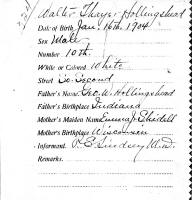 Walter Thayer Hollingshead
Date of Birth Jan. 16th 1904
Sex Male
Number 10th.
White or Colored White
Street So. Second
Father's Name Geo. W. Hollingshead
Father's Birthplace Indiana
Mother's Maiden Name Emma J.
Mother's Birthplace Wisconsin
Informant. Lindsey M.D.
Remarks